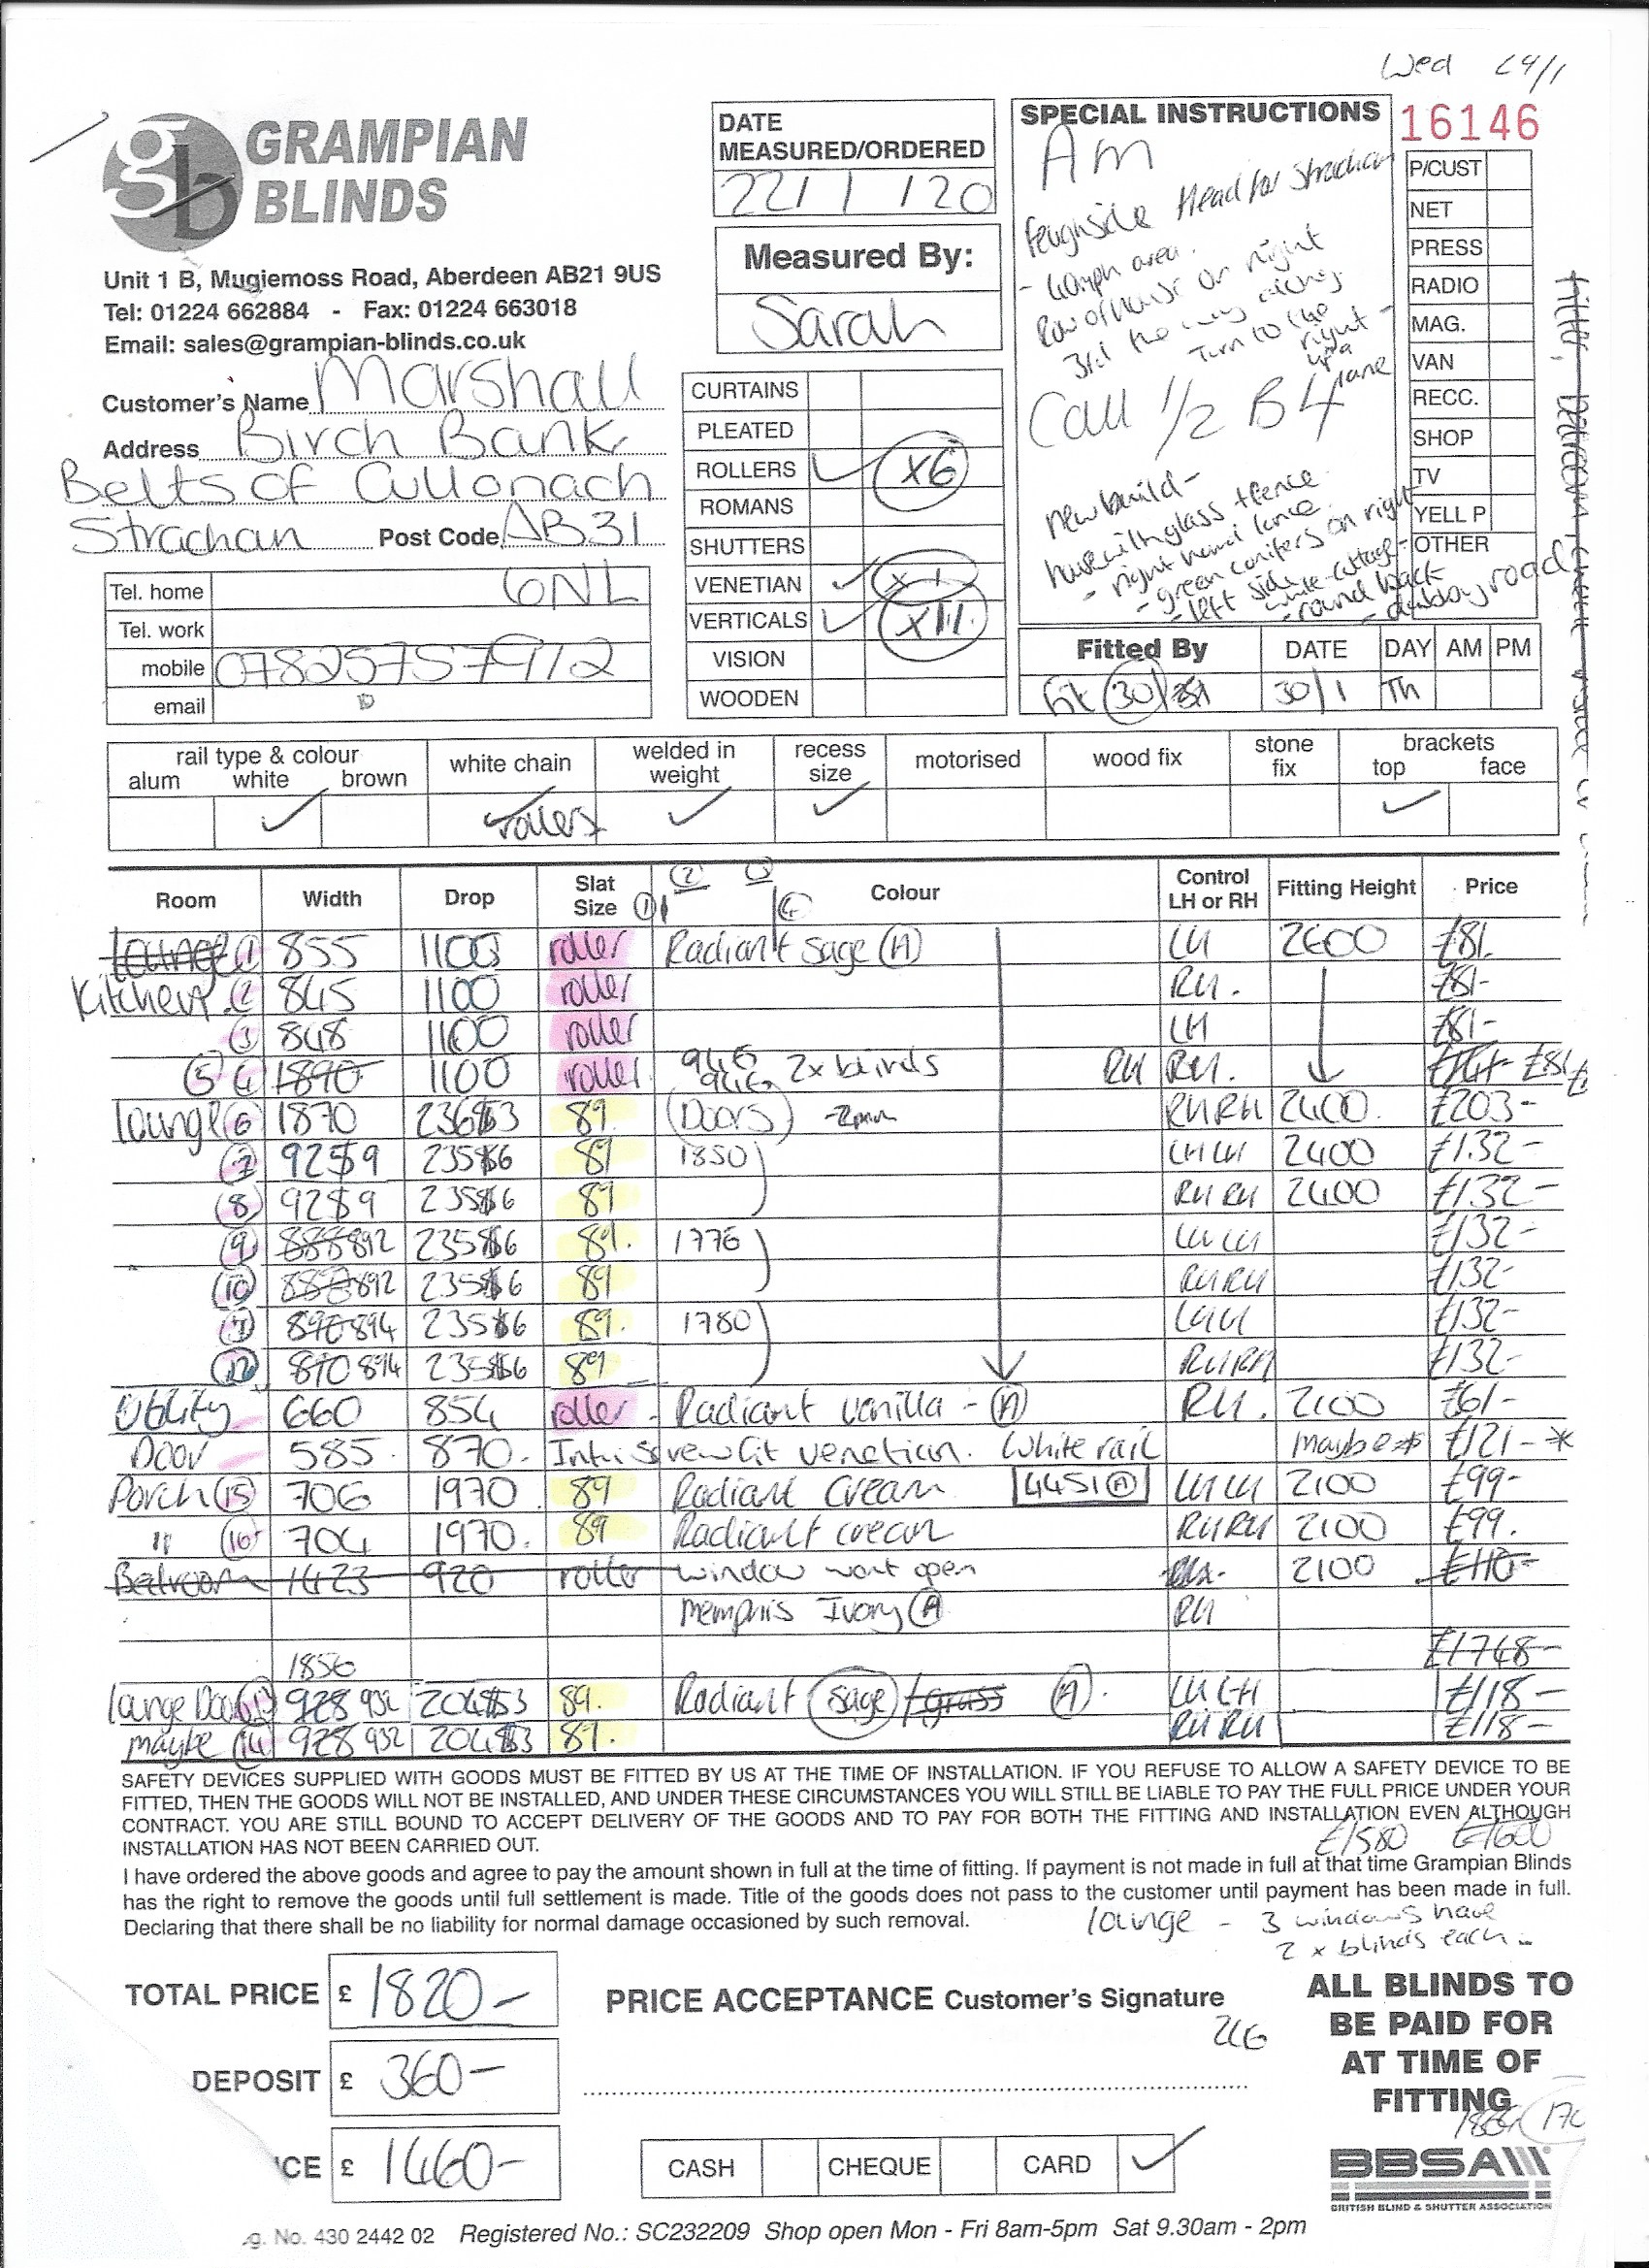 Wed 29/1
GRAMPIAN
BLINDS
Unit 1 B, Mugiemoss Road, Aberdeen AB21 9US
Tel: 01224 662884 - Fax: 01224 663018
Email: sales@grampian-blinds.co.uk
Customer's Name Marshall
Address Birch Bank
Belts of Cullonach
Strachan Post Code AB31
6NL
Tel. home
Tel. work
mobile 07825757972
email
DATE
MEASURED/ORDERED
22/1/20
Measured By:
Sarah
CURTAINS
PLEATED
ROLLERS x6
ROMANS
SHUTTERS
VENETIAN x1
VERTICALS x11
VISION
WOODEN
SPECIAL INSTRUCTIONS
Am
Feughside Head for Strachan
- 40mph area.
Row of houses on right
3rd the
Turn to the
right -
up a
lane
Call 1/2 B4
new build -
house with glass + fence
- right hand lane
- green conifers on right
- left side white cottage -
- round back
road
16146
P/CUST
NET
PRESS
RADIO
MAG.
VAN
RECC.
SHOP
TV
YELL P
OTHER
Fitted By DATE DAY AM PM
fit 30/ 30/1 Th
rail type & colour
alum white brown
white chain
welded in
weight
recess
size
motorised
wood fix
stone
fix
brackets
top face
rollers
Room Width Drop Slat Size Colour Control LH or RH Fitting Height Price
1 2 3 4
Lounge 1 855 1100 roller Radiant Sage (A) LH 2600 £81.
Kitchen 2 845 1100 roller RH. £81-
3 848 1100 roller LH £81-
5 4 1890 1100 roller 946 946 2x blinds RH RH. £81
Lounge 6 1870 2363 89. (Doors) RHRH 2400. £203-
7 929 2356 89 1850 LHLH 2400 £132-
8 929 2356 89 RHRH 2400 £132-
9 888 892 2356 89. 1776 LHLH £132-
10 887 892 2356 89 RHRH £132-
11 890 894 2356 89. 1780 LHLH £132-
12 890 894 2356 89 RHRH £132-
Utility 660 854 roller - Radiant Vanilla - (A) RH. 2100 £61-
Door 585. 870. Intu Screwfit Venetian. White rail maybe* £121-*
Porch 15 706 1970 89 Radiant Cream 4451 (A) LHLH 2100 £99-
" 16 704 1970. 89 Radiant cream RHRH 2100 £99.
Bedroom 1423 920 roller window wont open 2100 £110-
Memphis Ivory (A) RH
£1748-
1856
Lounge Door 13 928 932 2043 89. Radiant Sage / grass (A). LHLH £118-
maybe 14 928 932 2043 89. RHRH £118-
SAFETY DEVICES SUPPLIED WITH GOODS MUST BE FITTED BY US AT THE TIME OF INSTALLATION. IF YOU REFUSE TO ALLOW A SAFETY DEVICE TO BE
FITTED, THEN THE GOODS WILL NOT BE INSTALLED, AND UNDER THESE CIRCUMSTANCES YOU WILL STILL BE LIABLE TO PAY THE FULL PRICE UNDER YOUR
CONTRACT. YOU ARE STILL BOUND TO ACCEPT DELIVERY OF THE GOODS AND TO PAY FOR BOTH THE FITTING AND INSTALLATION EVEN ALTHOUGH
INSTALLATION HAS NOT BEEN CARRIED OUT.
£1580 £1600
I have ordered the above goods and agree to pay the amount shown in full at the time of fitting. If payment is not made in full at that time Grampian Blinds
has the right to remove the goods until full settlement is made. Title of the goods does not pass to the customer until payment has been made in full.
Declaring that there shall be no liability for normal damage occasioned by such removal.
lounge - 3 windows have
2 x blinds each -
TOTAL PRICE £ 1820-
PRICE ACCEPTANCE Customer's Signature
DEPOSIT £ 360-
CE £ 1460-
CASH CHEQUE CARD
ALL BLINDS TO
BE PAID FOR
AT TIME OF
FITTING
BBSA
BRITISH BLIND & SHUTTER ASSOCIATION
g. No. 430 2442 02 Registered No.: SC232209 Shop open Mon - Fri 8am-5pm Sat 9.30am - 2pm